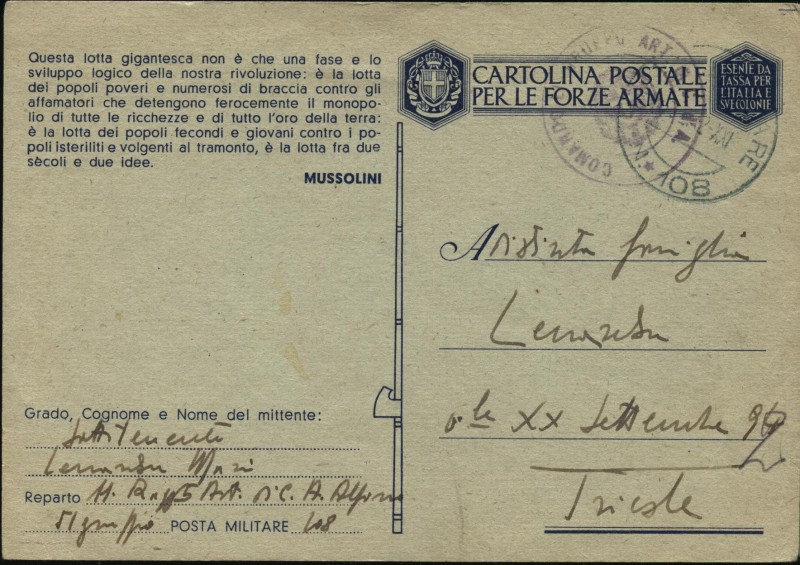 Questa lotta gigantesca non è che una fase e lo
sviluppo logico della nostra rivoluzione: è la lotta
dei popoli poveri e numerosi di braccia contro gli
affamatori che detengono ferocemente il monopo-
lio di tutte le ricchezze e di tutto l'oro della terra:
è la lotta dei popoli fecondi e giovani contro i po-
poli isteriliti e volgenti al tramonto, è la lotta fra due
sècoli e due idee.
MUSSOLINI
CARTOLINA POSTALE
PER LE FORZE ARMATE
ESENTE DA
TASSA PER
L'ITALIA E
SVE COLONIE
ART
COMANDO
801
A Distinta famiglia
V.le XX Settembre
Trieste
Grado, Cognome e Nome del mittente:
Sottotenente
Reparto
POSTA MILITARE 108